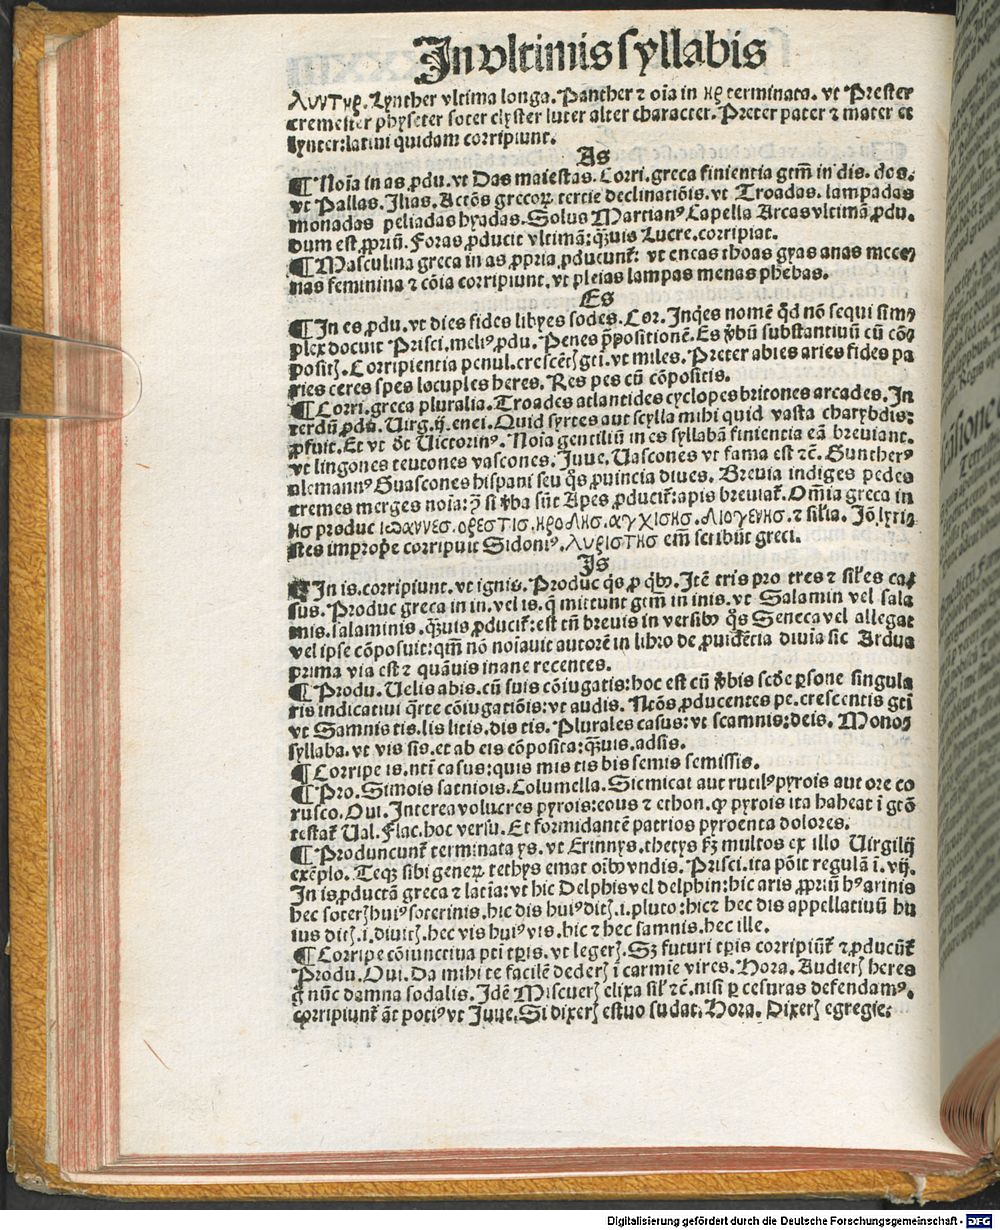 In vltimis syllabis
λυντηρ. Lynther vltima longa. Panther ⁊ oīa in ηρ terminata. vt Prester
cremester physeter soter clyster luter alter character. Preter pater ⁊ mater et
lynter: latini quidam corripiunt.
As
¶ Noīa in as ꝓdu. vt Das maiestas. Corri. greca finientia gtm̄ in dis. dos.
vt Pallas. Ilias. Actōs grecoꝝ tercie declinatiōis. vt Troadas. lampadas
monadas peliadas hyadas. Solus Martianꝰ Capella Arcas vltimā ꝓdu.
dum est ꝓpriū. Foras ꝓducit vltimā: qͣ̄uis Lucre. corripiat.
¶ Masculina greca in as ꝓpria ꝓducunt᷑: vt eneas thoas gyas anas mece⸗
nas feminina ⁊ cōia corripiunt. vt pleias lampas menas phebas.
Es
¶ In es ꝓdu. vt dies fides libyes sodes. Cor. Inqͥes nomē qd̄ nō sequi sim⸗
plex docuit Prisci. meliꝰ ꝓdu. Penes p̄positionē. Es v̄bū substantiuū cū cō⸗
positꝭ. Corripientia penul. crescētꝭ gti. vt miles. Preter abies aries fides pa
ries ceres spes locuples heres. Res pes cū cōpositis.
¶ Corri. greca pluralia. Troades atlantides cyclopes britones arcades. In
terdū ꝓdu. Uirg. ij. enei. Quid syrtes aut scylla mihi quid vasta charybdis:
ꝓfuit. Et vt dt̄ Uictorinꝰ. Noīa gentiliū in es syllabā finientia eā breuiant.
vt lingones teutones vascones. Juue. Uascones vt fama est ⁊c̄. Guntherꝰ
alemannꝰ Guascones hispani seu qͦs ꝓuincia diues. Breuia indiges pedes
tremes merges noīa: ꝙ si v̄ba sūt Apes ꝓducit᷑: apis breuiat᷑. Om̄ia greca in
ης produc ιωαννες. ορεστις. ηροδης. αγχισης. διογενης. ⁊ sil̄ia. Jō. lyri⸗
stes improp̄e corripuit Sidoniꝰ. λυριστης em̄ scribūt greci.
Is
¶ In is. corripiunt. vt ignis. Produc qͥs ꝓ qͥbꝰ. Itē tris pro tres ⁊ sil̄es ca⸗
sus. Produc greca in in. vel is. q̄ mittunt gtm̄ in inis. vt Salamin vel sala
mis. salaminis. qͣ̄uis ꝓducit᷑: est tn̄ breuis in versibꝰ qͦs Seneca vel allegat
vel ipse cōposuit: qm̄ nō noīauit autorē in libro de ꝓuidētia diuīa sic Ardua
prima via est ⁊ quāuis inane recentes.
¶ Produ. Uelis abis. cū suis cōiugatis: hoc est cū v̄bis scd̄e ꝑsone singula
ris indicatiui qͣrte cōiugatiōis: vt audis. Ntōs ꝓducentes pe. crescentis gti
vt Samnis tis. lis litis. dis tis. Plurales casus: vt scamnis: deis. Mono⸗
syllaba. vt vis sis. et ab eis cōposita: qͣ̄uis. adsis.
¶ Corripe is. nti casus: quis mis tis bis semis semissis.
¶ Pro. Simois satniois. Columella. Sic micat aut rutilꝰ pyrois aut ore co
rusco. Oui. Interea volucres pyrois: eous ⁊ ethon. ꝙ pyrois ita habeat ī gtō
testat᷑ Ual. Flac. hoc versu. Et formidantē patrios pyroenta dolores.
¶ Producunt᷑ terminata ys. vt Erinnys. thetys sꝫ multos ex illo Uirgilij
exēplo. Teqꝫ sibi generꝝ tethys emat oībꝰ vndis. Prisci. ita pōit regulā ī. vij.
In is ꝓductā greca ⁊ latīa: vt hic Delphis vel delphin: hic aris ꝓpriū hꝰ arinis
hec soterꝭ huiꝰ soterinis. hic dis huiꝰ ditꝭ. i. pluto: hic ⁊ hec dis appellatiuū hu
ius ditꝭ. i. diuitꝭ. hec vis huiꝰ vis. hic ⁊ hec samnis. hec ille.
¶ Corripe cōiunctiua pt̄i tp̄is. vt legerꝭ. Sꝫ futuri tp̄is corripiūt᷑ ⁊ ꝓducūt᷑
Produ. Oui. Da mihi te facilē dederꝭ ī carmīe vires. Hora. Audierꝭ heres
g̊ nūc damna sodalis. Idē Miscuerꝭ elixa sil̄ ⁊c̄. nisi ꝑ cesuras defendamꝰ.
corripiunt᷑ āt potiꝰ vt Juue. Si dixerꝭ estuo sudat. Hora. Dixerꝭ egregie:
Digitalisierung gefördert durch die Deutsche Forschungsgemeinschaft - DFG